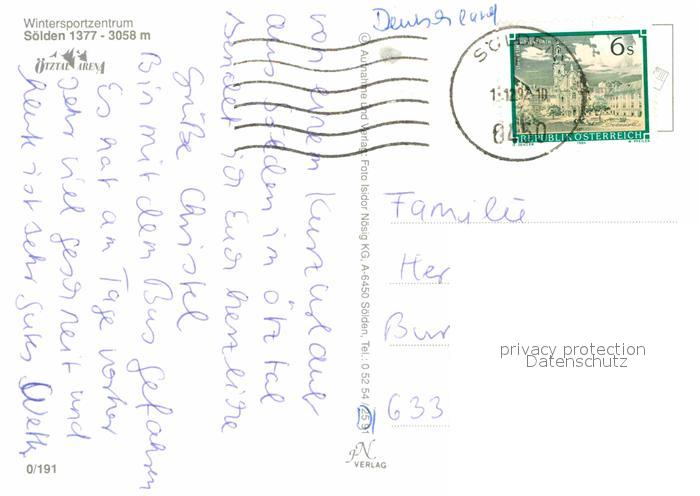 Wintersportzentrum
Sölden 1377 - 3058 m
ÖTZTAL ARENA
Deutschland
von einem Kurzurlaub
aus Sölden im Ötztal
sendet ich Euch herzliche
Grüße Christel
Bin mit dem Bus gefahren
Es hat am Tage vorher
sehr viel geschneit und
heute ist sehr gutes Wetter
© Aufnahme und Verlag: Foto Isidor Nösig KG, A-6450 Sölden, Tel.: 0 52 54 / 25 91
6s
REPUBLIK ÖSTERREICH
6450
Familie
Her
Bur
633
D
privacy protection
Datenschutz
JN
VERLAG
0/191